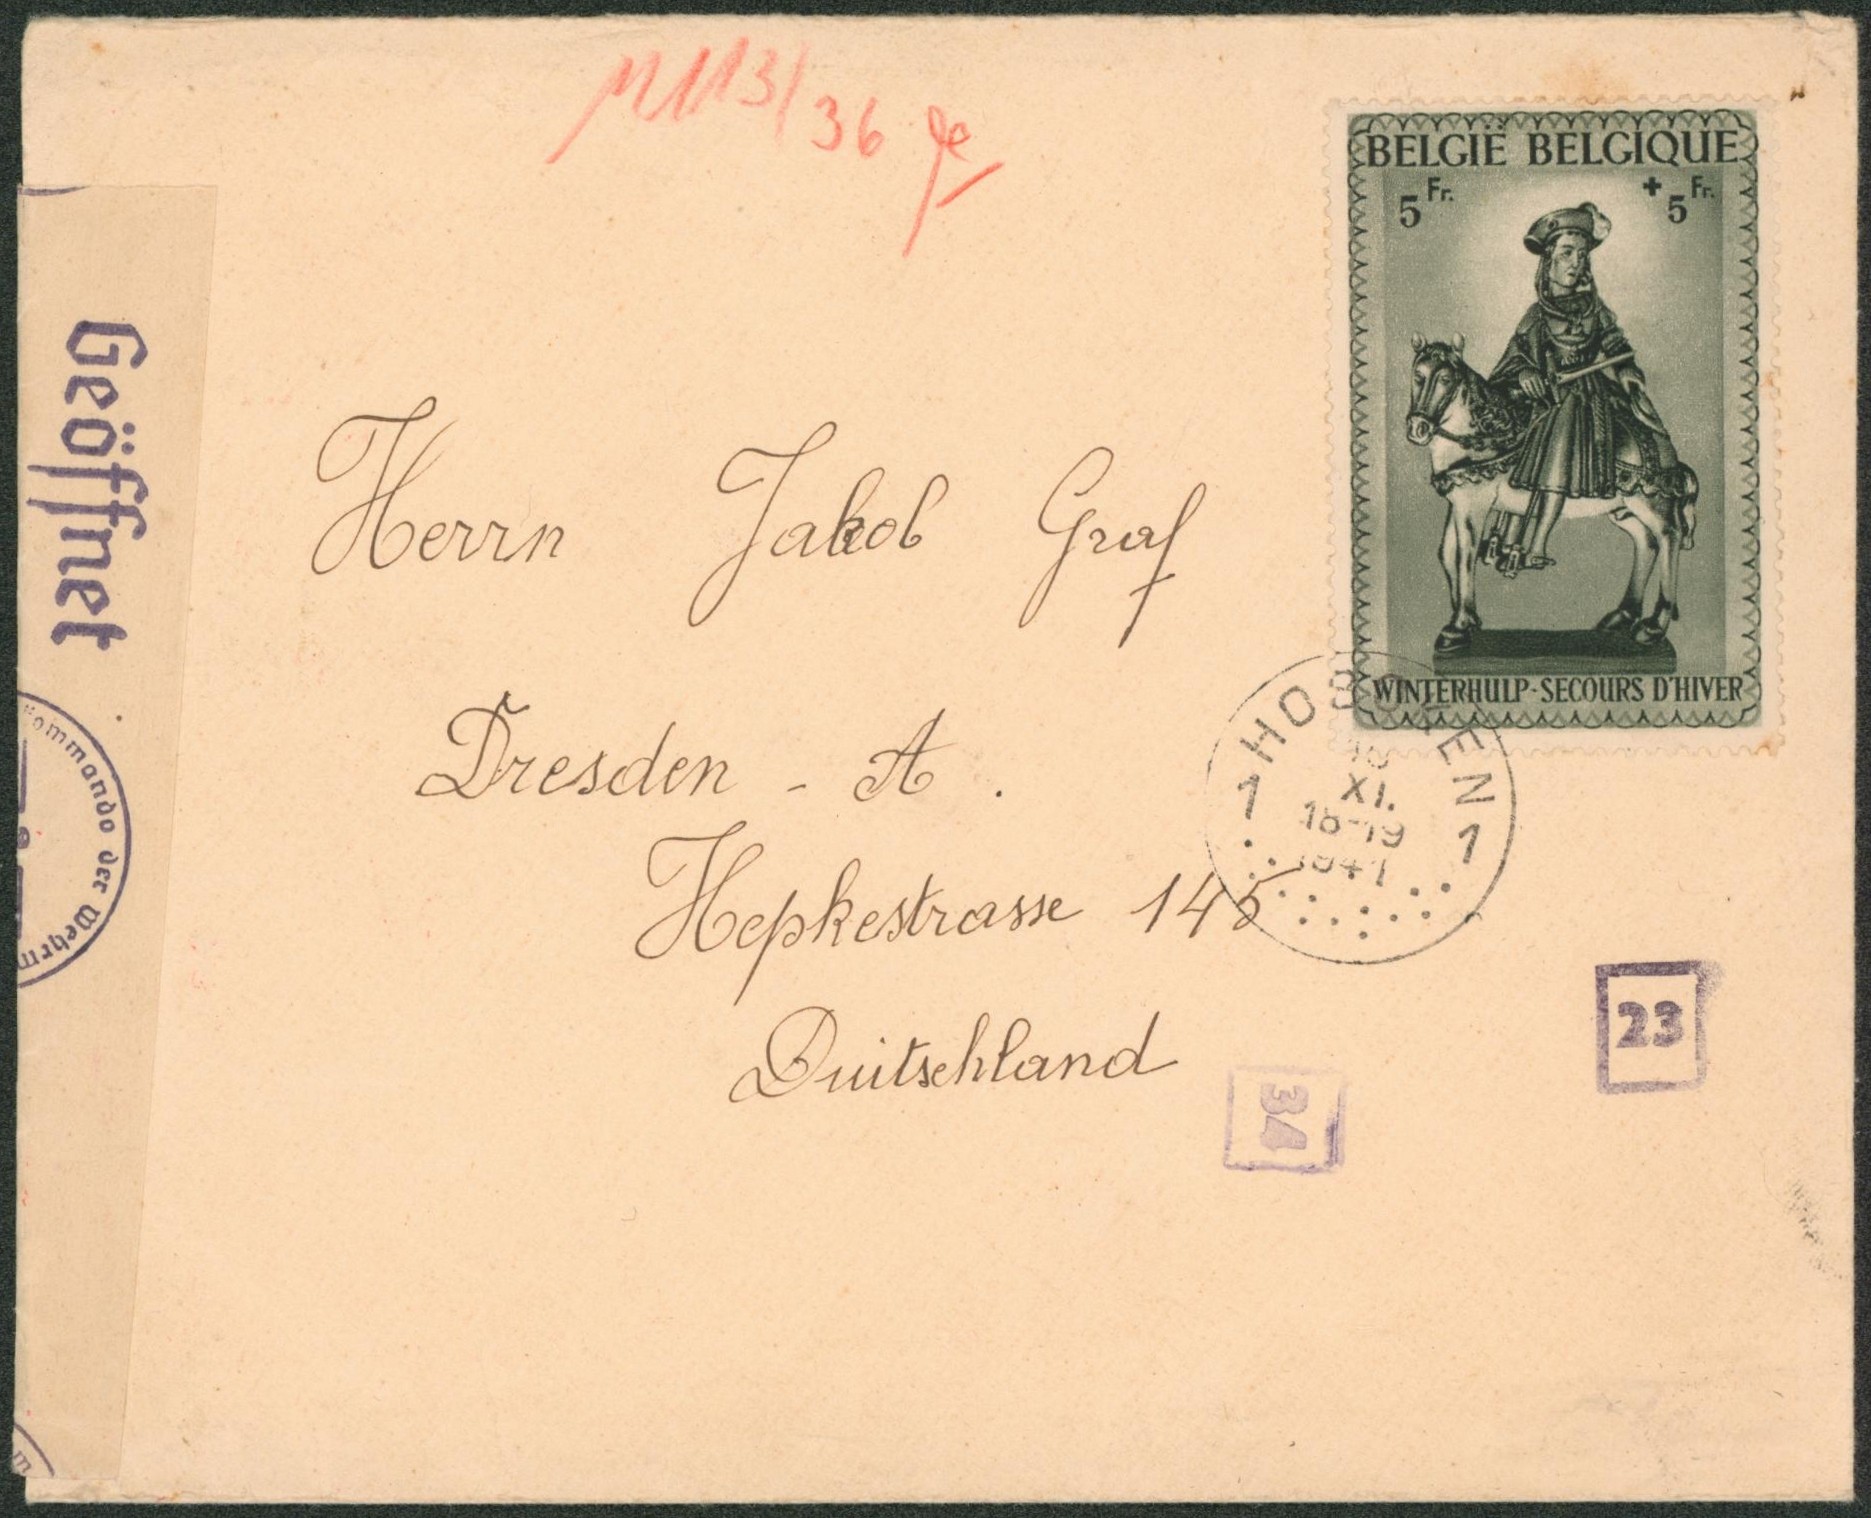 36
BELGIË BELGIQUE
5 Fr. + 5 Fr.
WINTERHULP-SECOURS D'HIVER
Geöffnet
Herrn Jakob Graf
Dresden - A.
Hepkestrasse 145
Duitschland
1 HOBOKEN 1
XI.
18-19
1941
kommando der Wehrm
23
34